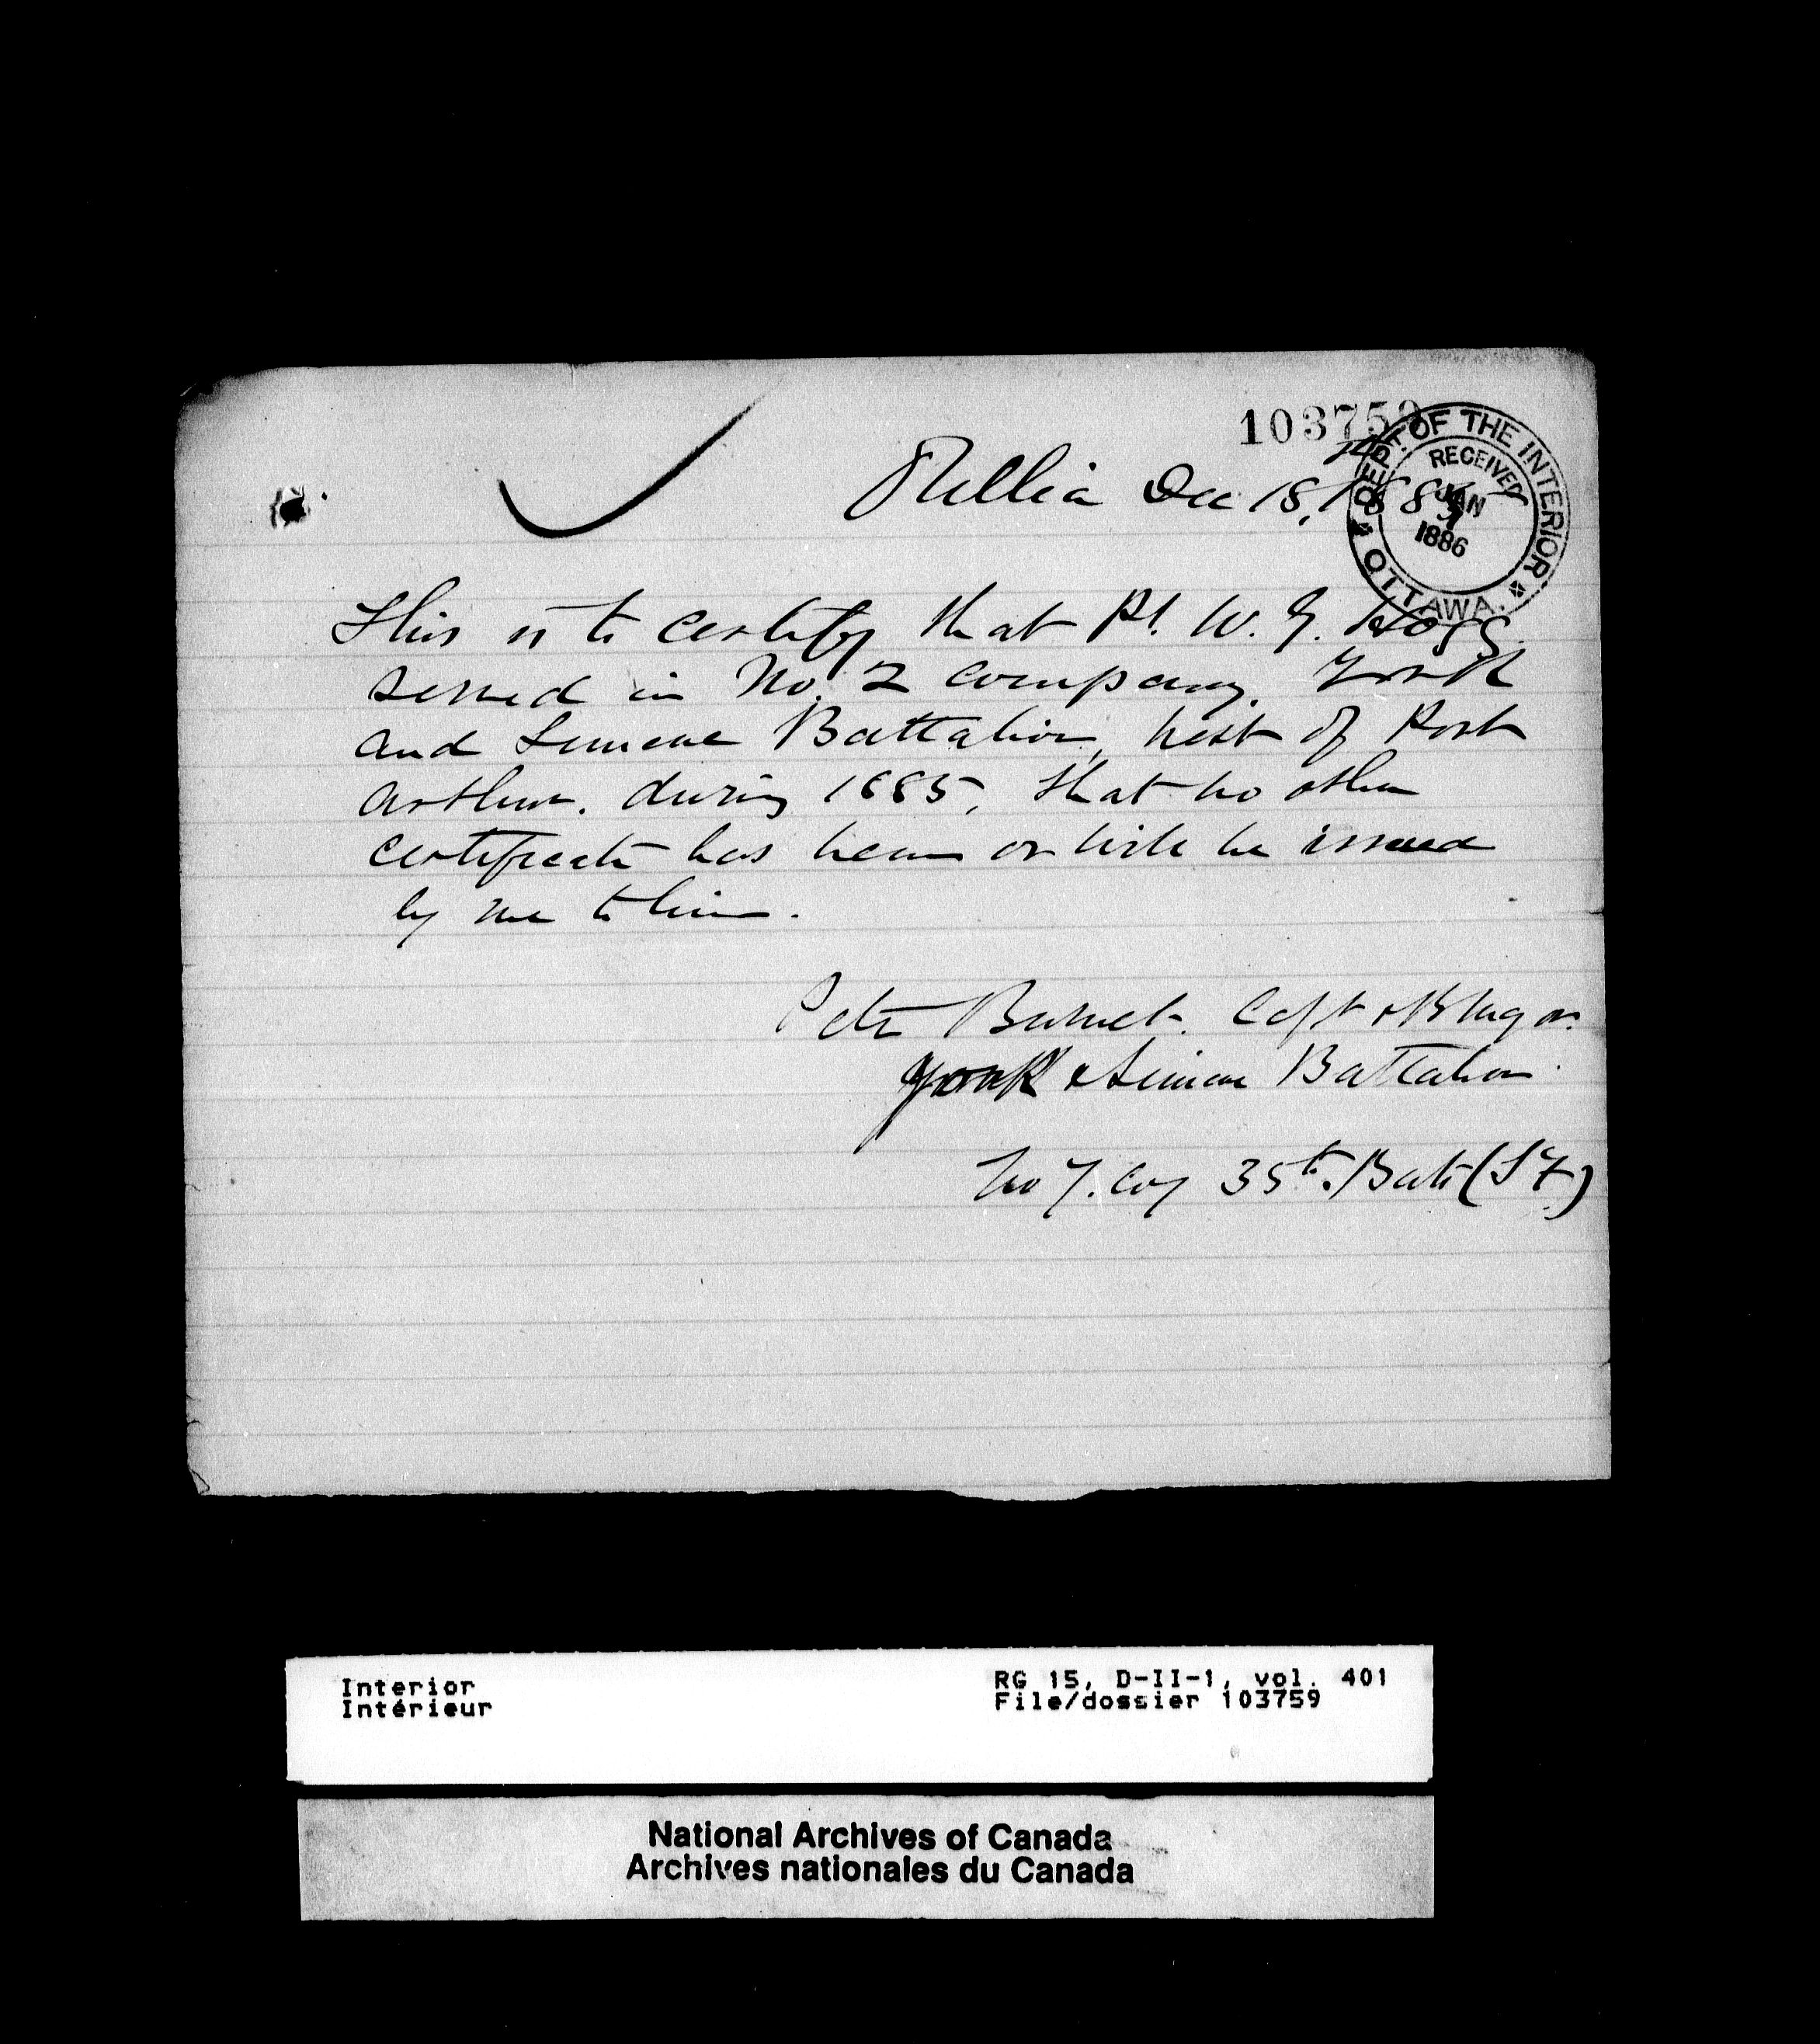 103759
Orillia Dec 18, 1885
DEPT. OF THE INTERIOR
RECEIVED
JAN
1886
OTTAWA.
This is to certify that Pt. W. G. Hogg
served in No. 2 company, York
and Simcoe Battalion, West of Port
Arthur. during 1885, that no other
certificate has been or will be issued
by me to him.
Peter Burnet. Capt
York & Simcoe Battalion.
No 7. Coy 35th. Batt (S F.)
Interior
Intérieur
RG 15, D-II-1, vol. 401
File/dossier 103759
National Archives of Canada
Archives nationales du Canada